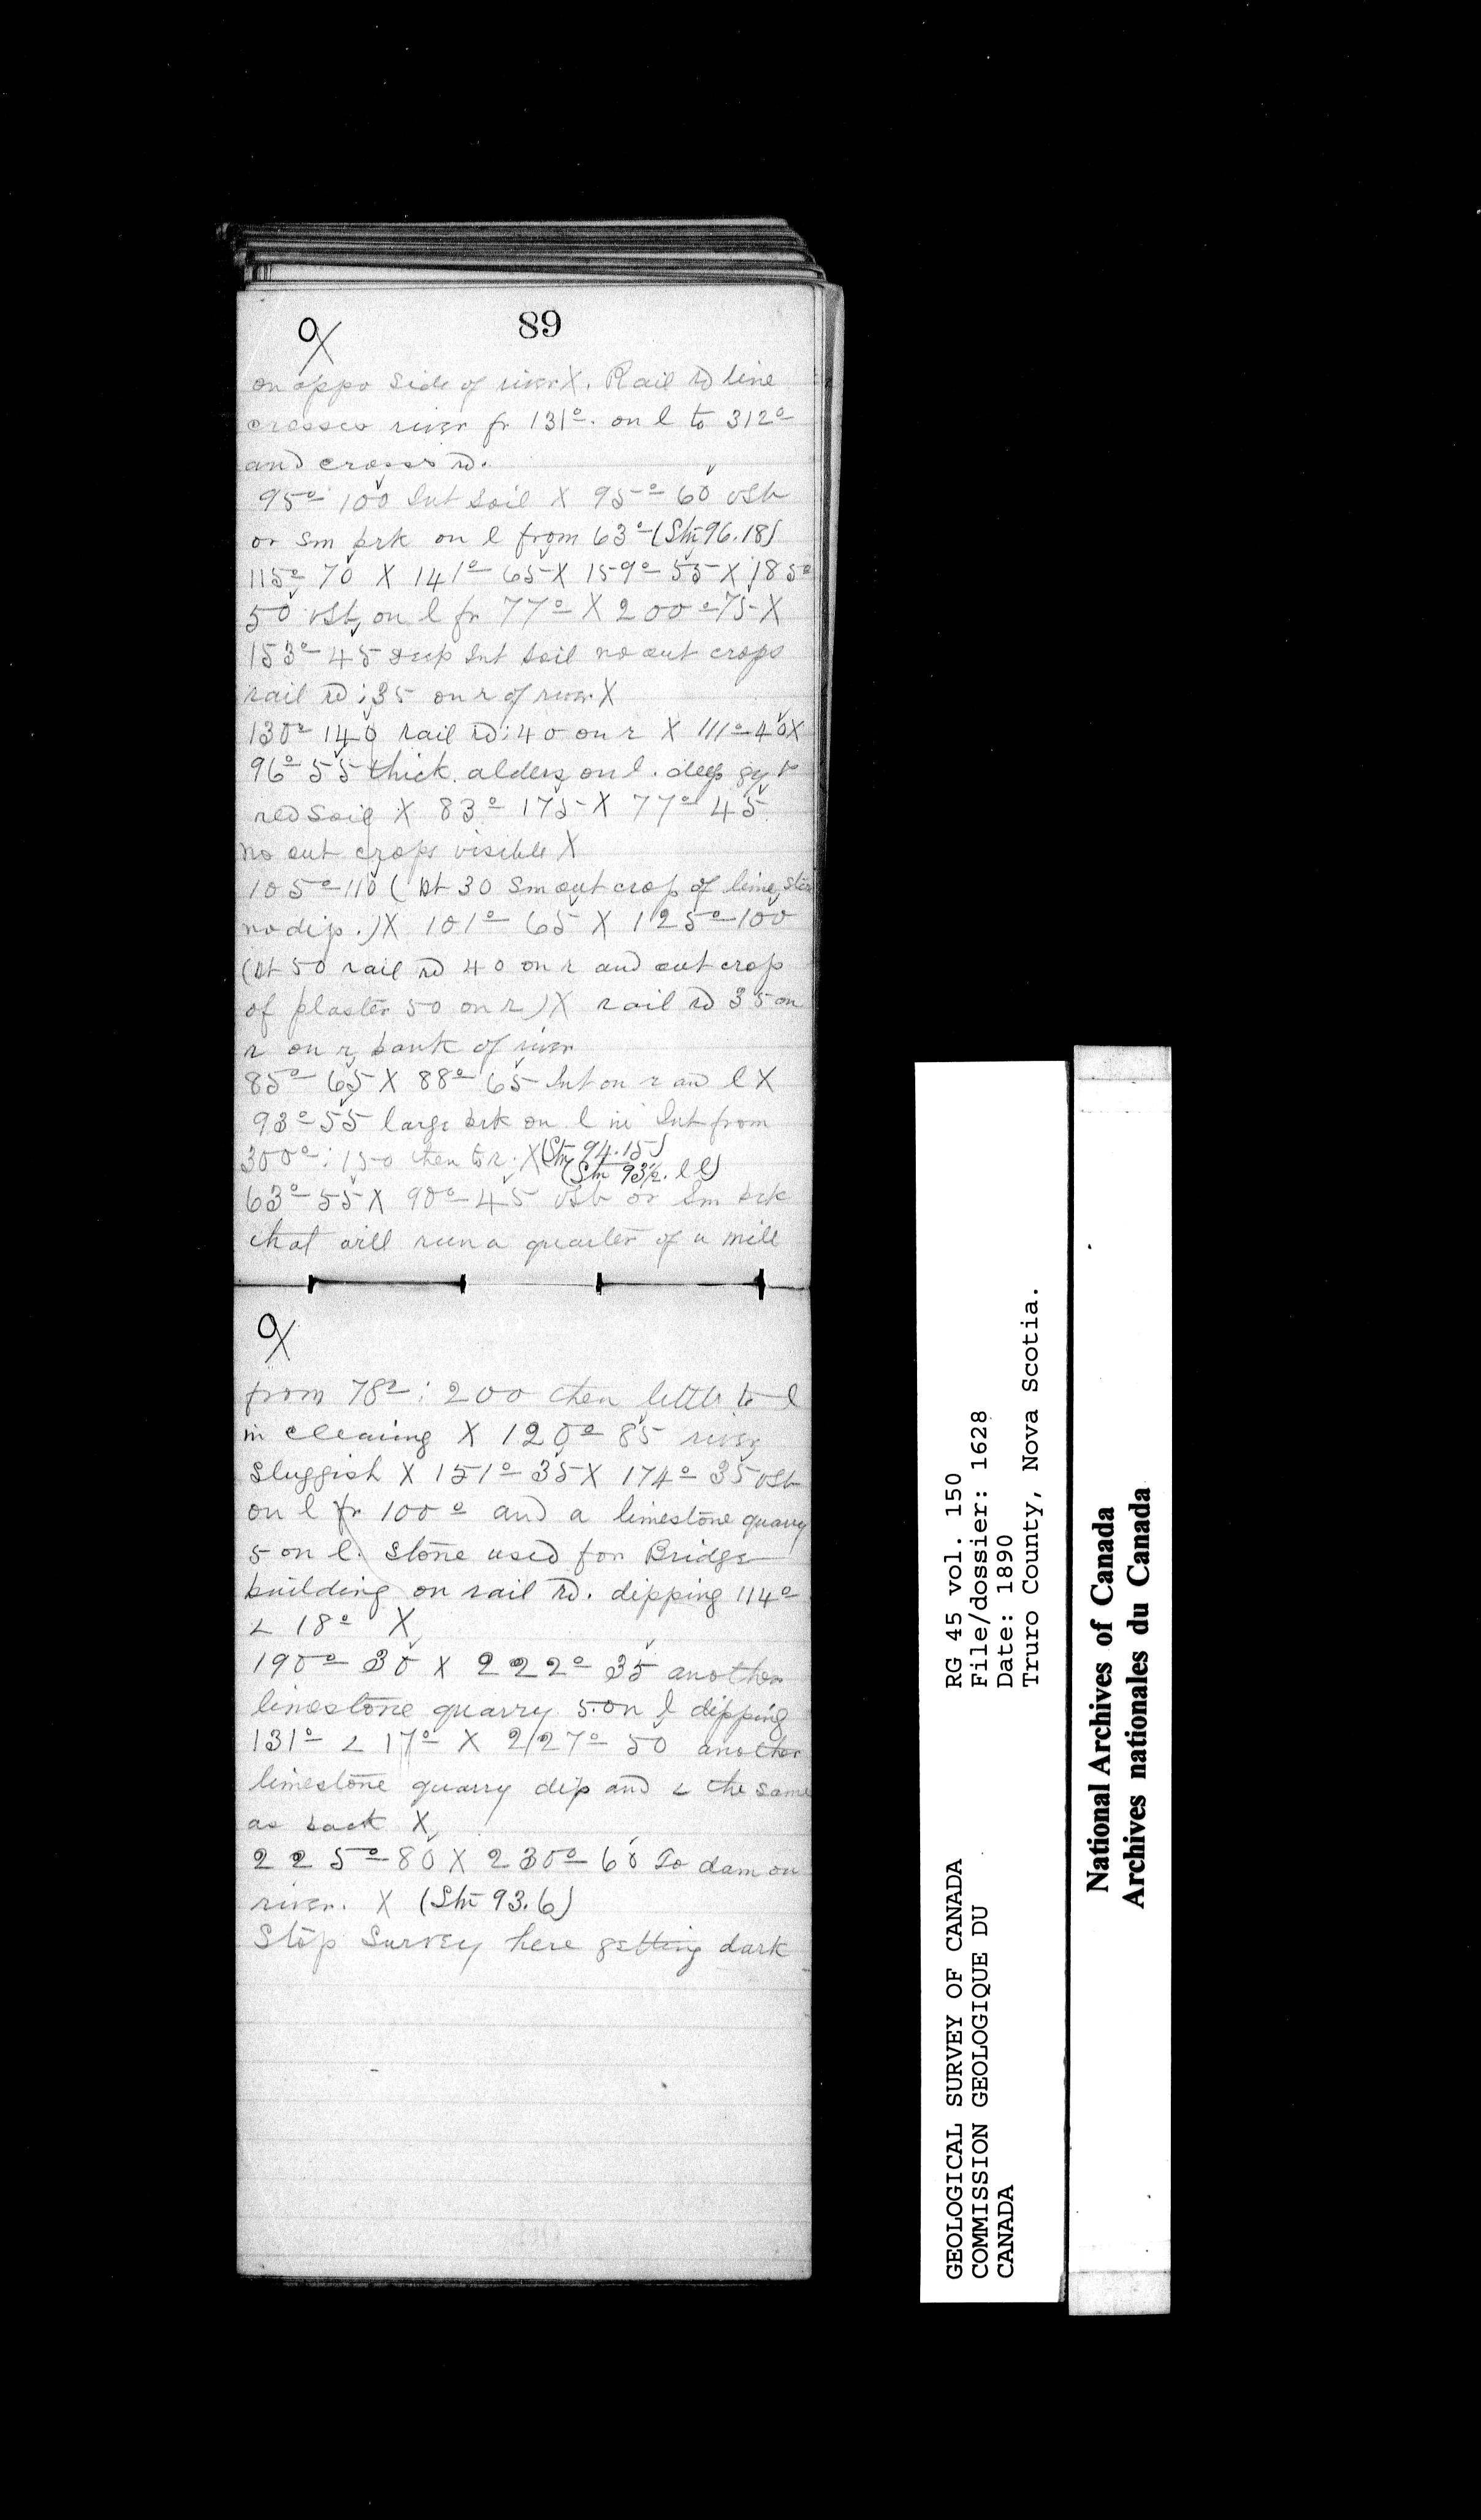 89
OX
on oppo side of river X. Rail rd line
crosses river fr 131º. on l to 312º
and cross rd.
95º 100 Int soil X 95º 60 vSb
or sm brk on l from 63º (Stn 96.18)
115º 70 X 141º 65 X 159º 55 X 185º
50 vSb on l fr 77º X 200º 75 X
153º 45 deep Int soil no out crops
rail rd : 35 on r of river X
130º 140 rail rd : 40 on r X 111º 40 X
96º 55 thick alders on l. deep gy
red soil X 83º 175 X 77º 45
no out crops visible X
105º 110 (At 30 Sm out crop of lime
no dip.) X 101º 65 X 125º 100
(At 50 rail rd 40 on r and out crop
of plaster 50 on r) X rail rd 35 on
r on r bank of river
85º 65 X 88º 65 Int on r and l X
93º 55 large brk on l in Int from
300º : 150 then to r. X (Stn 94.15)
(Stn 93½. ll)
63º 55 X 90º 45 vSb or Sm brk
that will run a quarter of a mill
OX
from 78º : 200 then little to l
in clearing X 120º 85 river
Sluggish X 151º 35 X 174º 35 vSb
on l fr 100º and a limestone quarry
5 on l. Stone used for Bridge
building on rail rd. dipping 114º
< 18º X
190º 30 X 222º 35 another
limestone quarry 5 on l dipping
131º < 17º X 227º 50 another
limestone quarry dip and < the same
as back X
225º 80 X 230º 60 To dam on
river. X (Stn 93.6)
Stop Survey here getting dark
GEOLOGICAL SURVEY OF CANADA
COMMISSION GEOLOGIQUE DU
CANADA
RG 45 vol. 150
File/dossier: 1628
Date: 1890
Truro County, Nova Scotia.
National Archives of Canada
Archives nationales du Canada